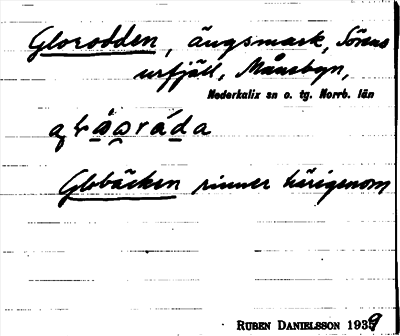 Glorodden, ängsmark, Sörens
urfjäll, Månsbyn,
Nederkalix sn o. tg. Norrb. län
Globäcken rinner härigenom
RUBEN DANIELSSON 1939